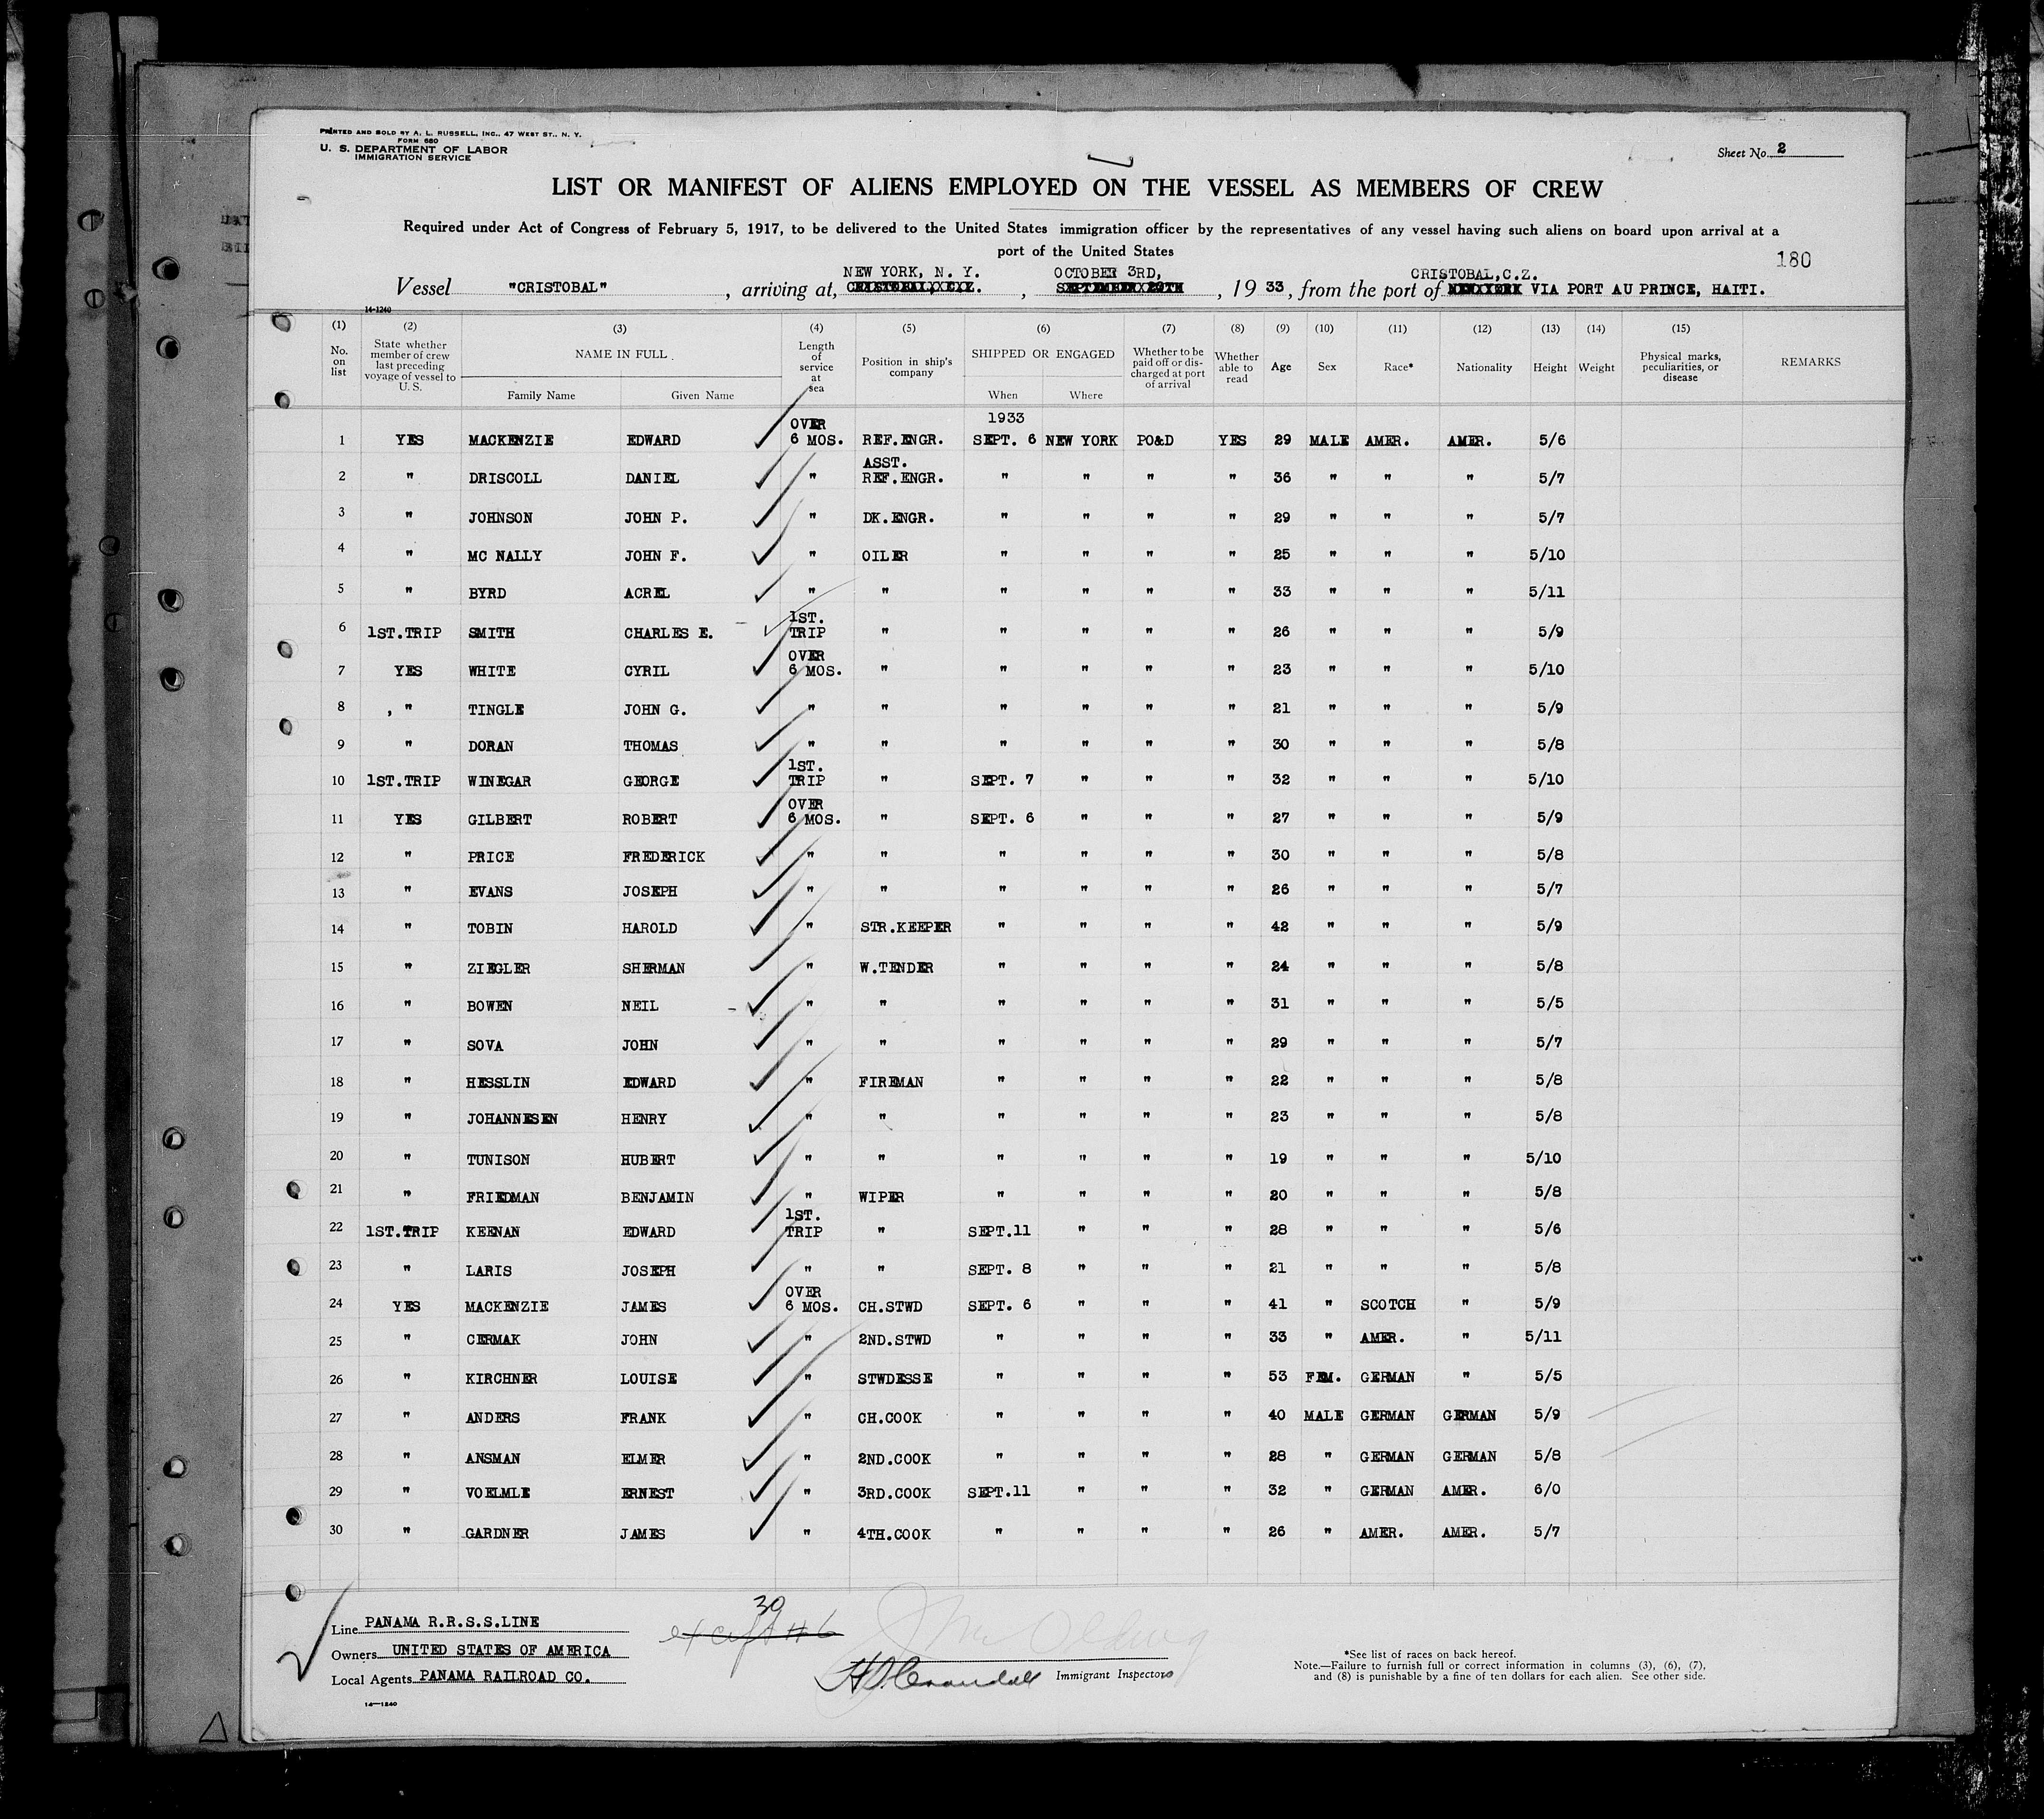 PRINTED AND SOLD BY A. L. RUSSELL, INC., 47 WEST ST., N. Y.
FORM 680
U. S. DEPARTMENT OF LABOR
IMMIGRATION SERVICE
Sheet No. 2
LIST OR MANIFEST OF ALIENS EMPLOYED ON THE VESSEL AS MEMBERS OF CREW
Required under Act of Congress of February 5, 1917, to be delivered to the United States immigration officer by the representatives of any vessel having such aliens on board upon arrival at a
port of the United States
180
NEW YORK, N. Y. OCTOBER 3RD, CRISTOBAL,C.Z.
Vessel "CRISTOBAL", arriving at, , 1933, from the port of VIA PORT AU PRINCE, HAITI.
14-1240
(1) (2) (3) (4) (5) (6) (7) (8) (9) (10) (11) (12) (13) (14) (15)
No. on list State whether member of crew last preceding voyage of vessel to U. S. NAME IN FULL Family Name Given Name Length of service at sea Position in ship's company SHIPPED OR ENGAGED When Where Whether to be paid off or discharged at port of arrival Whether able to read Age Sex Race* Nationality Height Weight Physical marks, peculiarities, or disease REMARKS
1 YES MACKENZIE EDWARD OVER 6 MOS. REF.ENGR. 1933 SEPT. 6 NEW YORK PO&D YES 29 MALE AMER. AMER. 5/6
2 " DRISCOLL DANIEL " ASST. REF.ENGR. " " " " 36 " " " 5/7
3 " JOHNSON JOHN P. " DK.ENGR. " " " " 29 " " " 5/7
4 " MC NALLY JOHN F. " OILER " " " " 25 " " " 5/10
5 " BYRD ACREL " " " " " " 33 " " " 5/11
6 1ST.TRIP SMITH CHARLES E. 1ST. TRIP " " " " " 26 " " " 5/9
7 YES WHITE CYRIL OVER 6 MOS. " " " " " 23 " " " 5/10
8 , " TINGLE JOHN G. " " " " " " 21 " " " 5/9
9 " DORAN THOMAS " " " " " " 30 " " " 5/8
10 1ST.TRIP WINEGAR GEORGE 1ST. TRIP " SEPT. 7 " " " 32 " " " 5/10
11 YES GILBERT ROBERT OVER 6 MOS. " SEPT. 6 " " " 27 " " " 5/9
12 " PRICE FREDERICK " " " " " " 30 " " " 5/8
13 " EVANS JOSEPH " " " " " " 26 " " " 5/7
14 " TOBIN HAROLD " STR.KEEPER " " " " 42 " " " 5/9
15 " ZIEGLER SHERMAN " W.TENDER " " " " 24 " " " 5/8
16 " BOWEN NEIL " " " " " " 31 " " " 5/5
17 " SOVA JOHN " " " " " " 29 " " " 5/7
18 " HESSLIN EDWARD " FIREMAN " " " " 22 " " " 5/8
19 " JOHANNESEN HENRY " " " " " " 23 " " " 5/8
20 " TUNISON HUBERT " " " " " " 19 " " " 5/10
21 " FRIEDMAN BENJAMIN " WIPER " " " " 20 " " " 5/8
22 1ST.TRIP KEENAN EDWARD 1ST. TRIP " SEPT.11 " " " 28 " " " 5/6
23 " LARIS JOSEPH " " SEPT. 8 " " " 21 " " " 5/8
24 YES MACKENZIE JAMES OVER 6 MOS. CH.STWD SEPT. 6 " " " 41 " SCOTCH " 5/9
25 " CERMAK JOHN " 2ND.STWD " " " " 33 " AMER. " 5/11
26 " KIRCHNER LOUISE " STWDESSE " " " " 53 FEM. GERMAN " 5/5
27 " ANDERS FRANK " CH.COOK " " " " 40 MALE GERMAN GERMAN 5/9
28 " ANSMAN ELMER " 2ND.COOK " " " " 28 " GERMAN GERMAN 5/8
29 " VOELMLE ERNEST " 3RD.COOK SEPT.11 " " " 32 " GERMAN AMER. 6/0
30 " GARDNER JAMES " 4TH.COOK " " " " 26 " AMER. AMER. 5/7
30
Line PANAMA R.R.S.S.LINE
Owners UNITED STATES OF AMERICA
Local Agents PANAMA RAILROAD CO.
Immigrant Inspectors
*See list of races on back hereof.
Note.—Failure to furnish full or correct information in columns (3), (6), (7),
and (8) is punishable by a fine of ten dollars for each alien. See other side.
14—1240